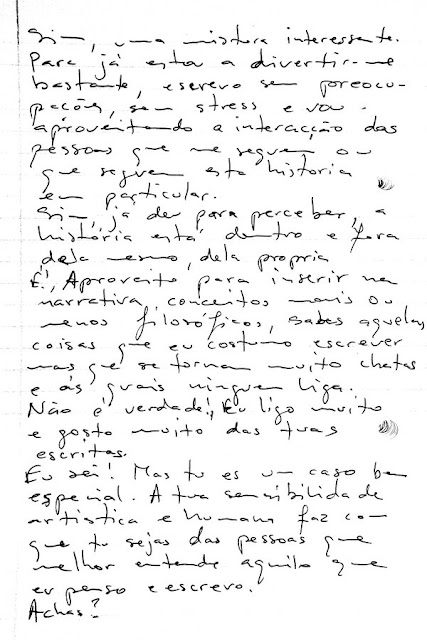 Sim, uma mistura interessante.
Para já estou a divertir-me
bastante, escrevo sem preocu-
pações, sem stress e vou
aproveitando a interacção das
pessoas que me seguem ou
que seguem esta historia
em particular.
Sim, já deu para perceber, a
história está dentro e fora
dela mesmo, dela propria
É!, Aproveito para inserir na
narrativa, conceitos mais ou
menos filosóficos, sabes aquelas
coisas que eu costumo escrever
mas que se tornam muito chatas
e ás quais ninguem liga.
Não é verdade!, Eu ligo muito
e gosto muito das tuas
escritas.
Eu sei! Mas tu es um caso bem
especial. A tua sensibilidade
artistica e humana faz com
que tu sejas das pessoas que
melhor entende aquilo que
eu penso e escrevo.
Achas?